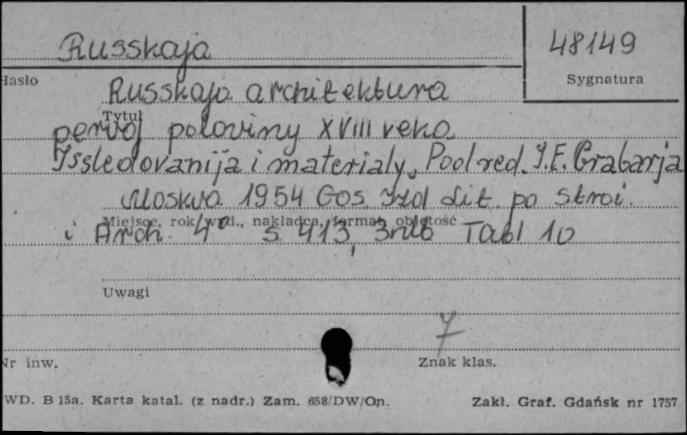 Russkaja
48149
Hasło
Sygnatura
Russkaja architektura
Tytuł
pervoj poloviny XVIII veka
Issledovanija i materialy. Pod red. I.E. Grabarja
Moskva 1954 Gos. Izd Lit. po stroi.
Miejsce, rok wyd., nakładca, format, objętość
i Arch. 4° s. 413, 3nlb Tabl 10
Uwagi
7
Nr inw.
Znak klas.
WD. B 15a. Karta katal. (z nadr.) Zam. 658/DW/Op.
Zakł. Graf. Gdańsk nr 1757